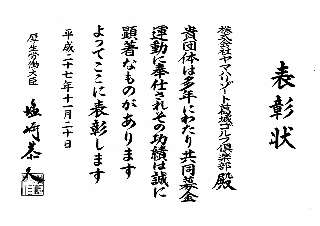 表彰状
株式会社ヤマハリゾート葛城ゴルフ倶楽部 殿
貴団体は多年にわたり共同募金
運動に奉仕されその功績は誠に
顕著なものがあります
よってここに表彰します
平成二十七年十一月二十日
厚生労働大臣
塩崎恭久